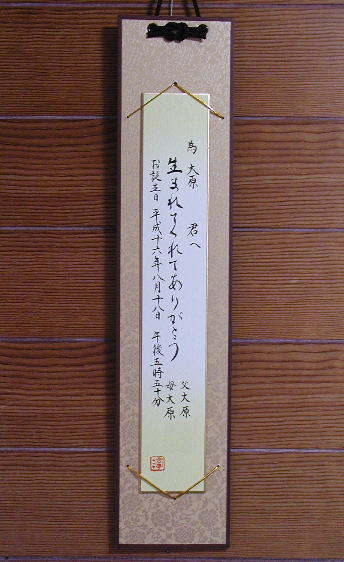 為 大原 君へ
生まれてくれてありがとう
お誕生日 平成十六年八月十八日 午後五時五十分
父 大原
母 大原